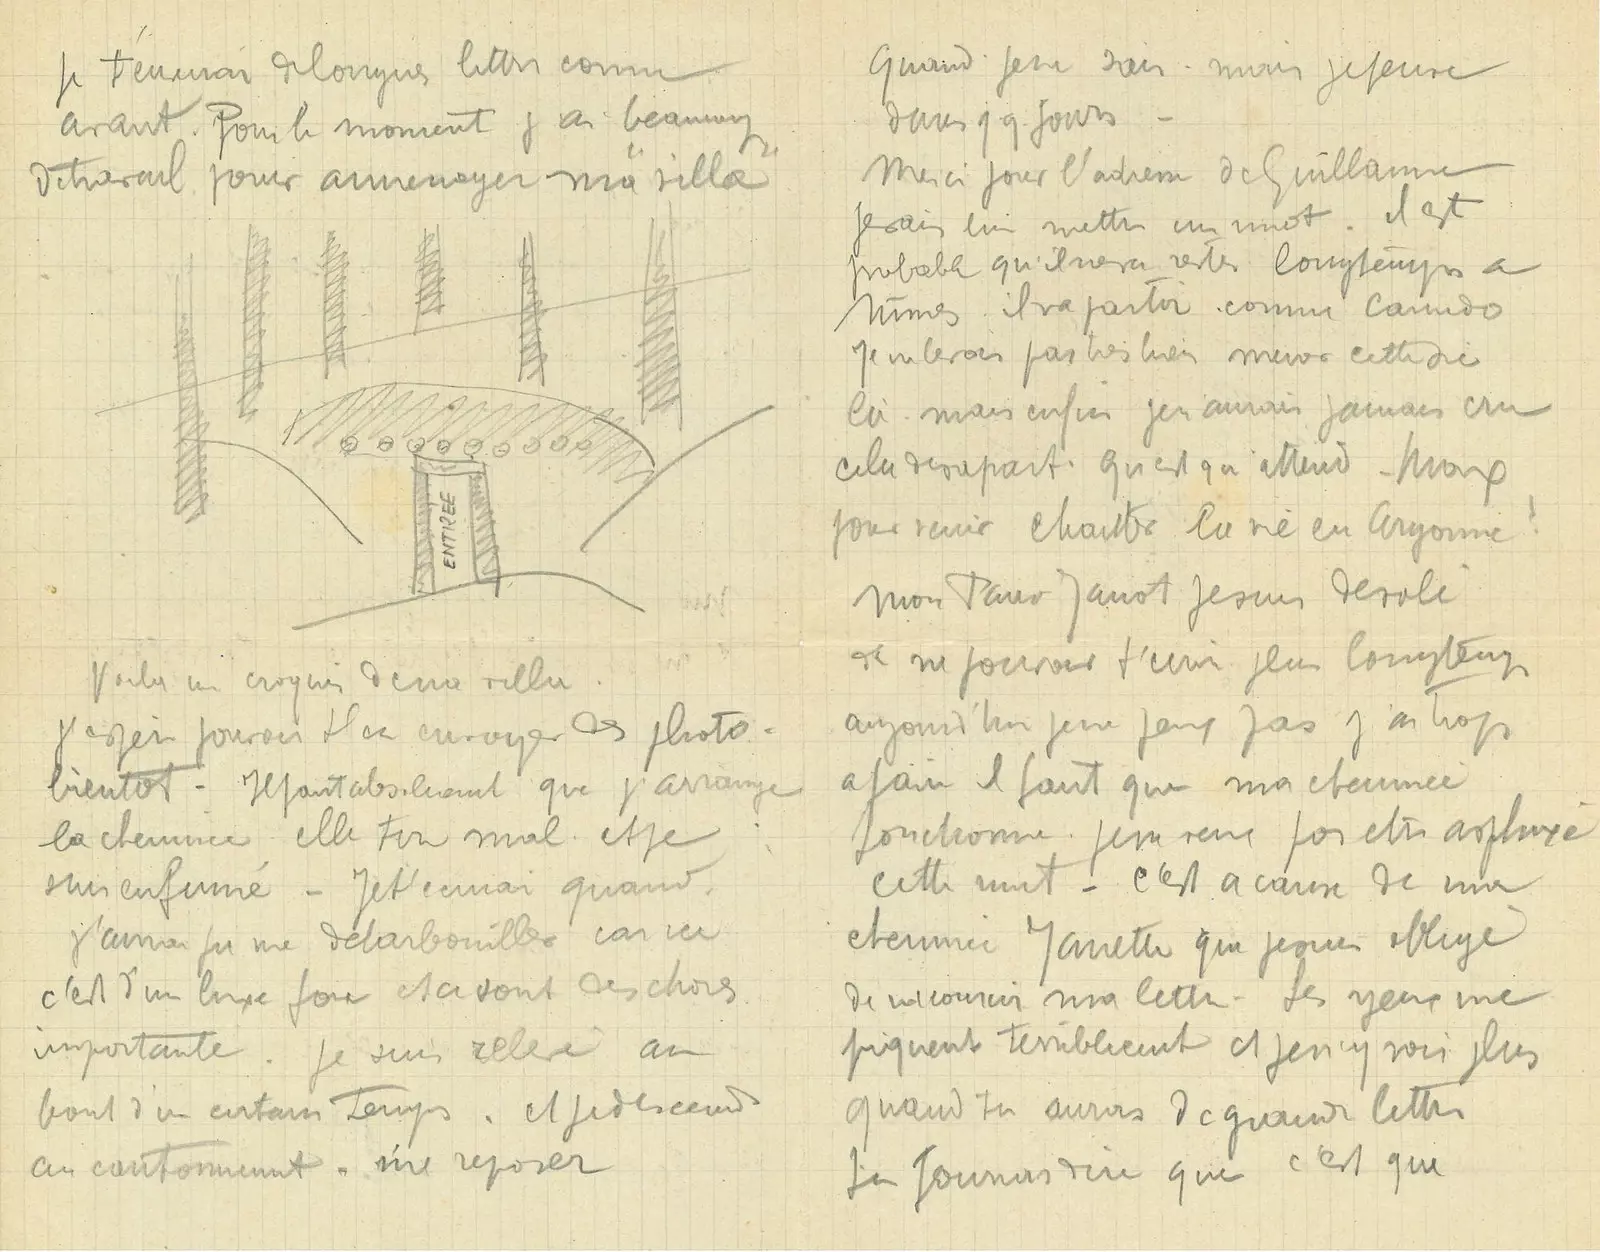 je t'écrirai de longues lettres comme
avant. Pour le moment j'ai beaucoup
de travail pour amenager ma "villa"
ENTREE
Voila un croquis de ma villa.
J'espère pouvoir t'en envoyer des photo-
bientot - Il faut absolument que j'arrange
la cheminée elle tire mal et je
suis enfumé - Je t'ecrirai quand.
j'aurai pu me débarbouiller car ici
c'est d'un luxe fou et ce sont des choses
importante. je suis relevé au
bout d'un certain temps. et je descends
au cantonnement. me reposer
Quand je ne sais. mais je pense
dans qq jours -
Merci pour l'adresse de Guillaume
je vais lui mettre un mot. il est
probable qu'il ne va rester longtemps a
Nimes il va partir comme Canudo
pas très bien cette vie
la. mais enfin je n'aurais jamais cru
cela de sa part. Qu'est qu'attend Max
pour venir chanter la vie en Argonne!
mon Janot je suis desolé
de ne pouvoir t'ecrire plus longtemps
aujourd'hui je ne peux pas j'ai trop
a faire il faut que ma cheminée
fonctionne. je ne veux pas etre asphyxié
cette nuit - c'est a cause de ma
cheminée Janette que je suis obligé
de raccourcir ma lettre - Les yeux me
piquent terriblement et je n'y vois plus
quand tu auras de grande lettre
tu pourras dire que c'est que